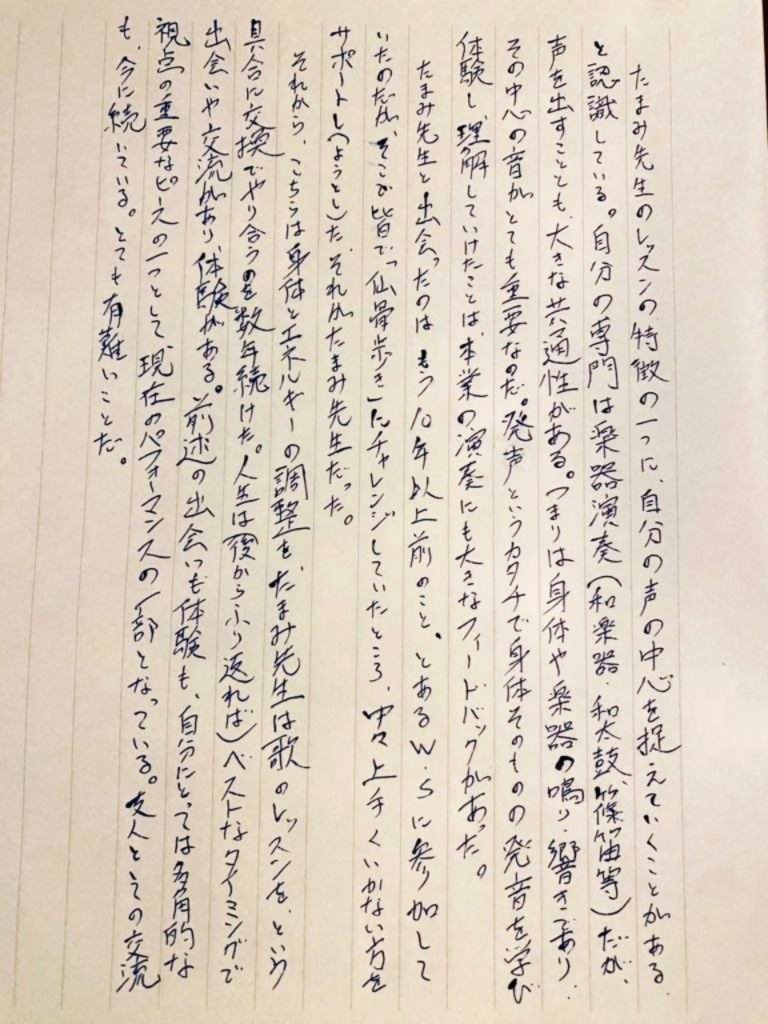 たまみ先生のレッスンの特徴の一つに、自分の声の中心を捉えていくことがある
と認識している。自分の専門は楽器演奏(和楽器・和太鼓、篠笛等)だが、
声を出すことも、大きな共通性がある。つまりは身体や楽器の鳴り・響きであり、
その中心の音がとても重要なのだ。発声というカタチで身体そのものの発音を学び
体験し理解していけたことは、本業の演奏にも大きなフィードバックがあった。
たまみ先生と出会ったのはもう10年以上前のこと、とあるW.Sに参加して
いたのだが、そこで皆で「仙骨歩き」にチャレンジしていたところ、中々上手くいかない方を
サポートし(ようとし)た、それがたまみ先生だった。
それから、こちらは身体とエネルギーの調整を、たまみ先生は歌のレッスンを、という
具合に交換でやり合うのを数年続けた。人生は(後からふり返れば)ベストなタイミングで
出会いや交流があり、体験がある。前述の出会いも体験も、自分にとっては多角的な
視点の重要なピースの一つとして、現在のパフォーマンスの一部となっている。友人としての交流
も、今に続いている。とても有難いことだ。